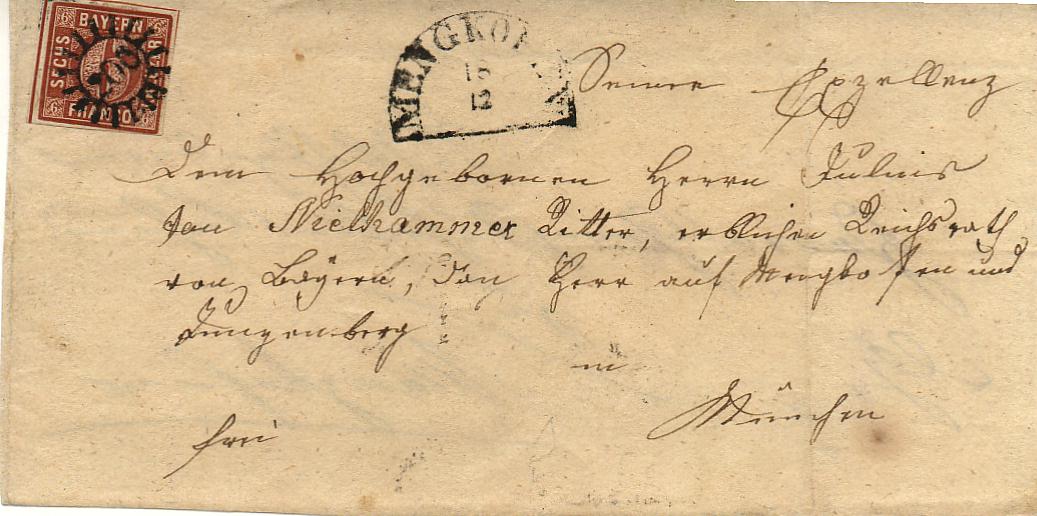 BAYERN
SECHS
FRANCO
6
6
6
MENGKOFEN
18
12
Seiner Exzellenz
Dem Hochgebornen Herrn Julius
von Niethammer Ritter, erblichen Reichsrath
von Bayern, Herr auf Mengkofen und
Tunzenberg
in
München
frei